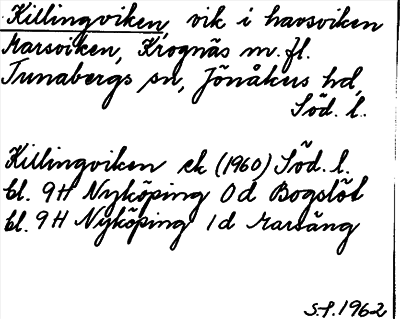 Killingviken, vik i havsviken
Marsviken, Krognäs m. fl.
Tunabergs sn, Jönåkers hd,
Söd. l.
Killingviken ek (1960) Söd. l.
bl. 9H Nyköping 0d Bogslöt
bl. 9H Nyköping 1d Marsäng
S.f. 1962